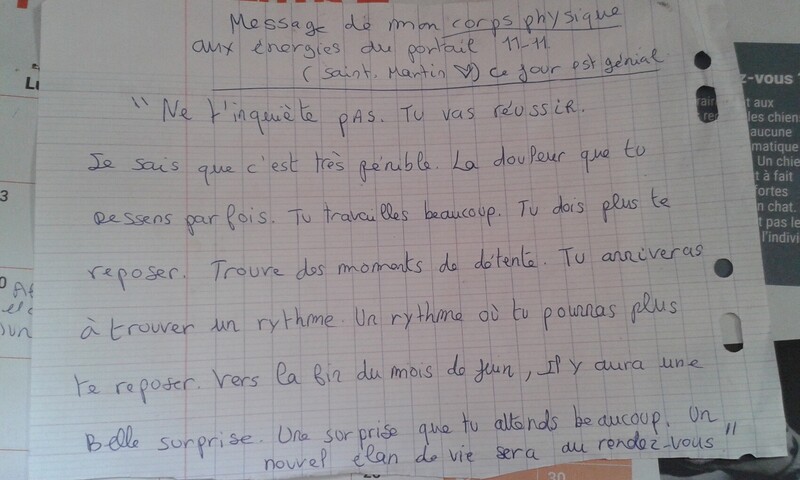 Message de mon corps physique
aux énergies du portail 11-11
(Saint. Martin ♡) ce jour est génial
" Ne t'inquiète pas. Tu vas réussir.
Je sais que c'est très pénible. La douleur que tu
ressens parfois. Tu travailles beaucoup. Tu dois plus te
reposer. Trouve des moments de détente. Tu arriveras
à trouver un rythme. Un rythme où tu pourras plus
te reposer. Vers la fin du mois de Juin, Il y aura une
Belle surprise. Une surprise que tu attends beaucoup. Un
nouvel élan de vie sera au rendez-vous "
z-vous
t aux
les chiens
aucune
matique
Un chie
t à fait
ortes
n chat.
t pas le
l'indivi
3
0
30